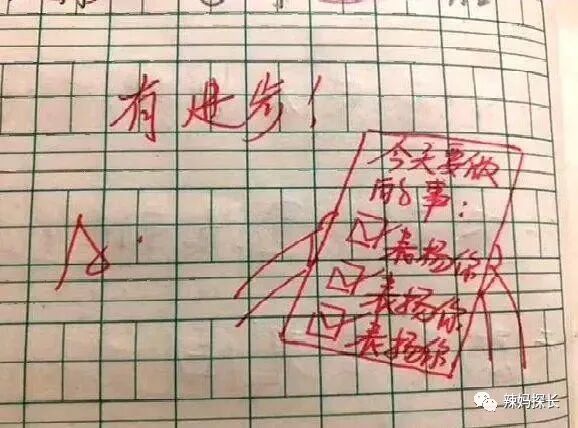 有进步！
今天要做
的事：
表扬你
表扬你
表扬你
辣妈探长